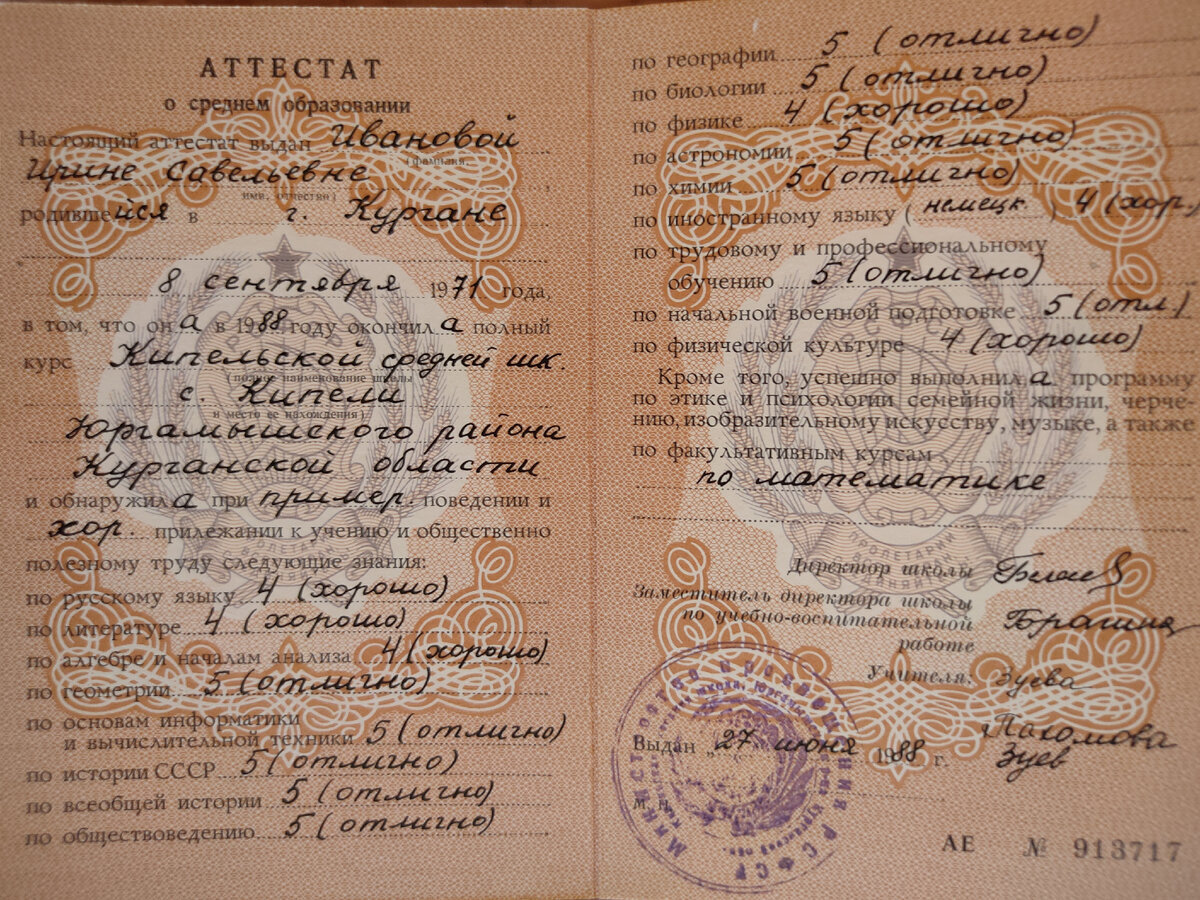 АТТЕСТАТ
о среднем образовании
Настоящий аттестат выдан Ивановой
(фамилия,
Ирине Савельевне
имя, отчество)
родившейся в г. Кургане
8 сентября 1971 года,
в том, что она в 1988 году окончила полный
курс Кипельской средней шк.
(полное наименование школы
с. Кипели
и место ее нахождения)
Юргамышского района
Курганской области
и обнаружила при пример. поведении и
хор. прилежании к учению и общественно
полезному труду следующие знания:
по русскому языку 4 (хорошо)
по литературе 4 (хорошо)
по алгебре и началам анализа 4 (хорошо)
по геометрии 5 (отлично)
по основам информатики
и вычислительной техники 5 (отлично)
по истории СССР 5 (отлично)
по всеобщей истории 5 (отлично)
по обществоведению 5 (отлично)
по географии 5 (отлично)
по биологии 5 (отлично)
по физике 4 (хорошо)
по астрономии 5 (отлично)
по химии 5 (отлично)
по иностранному языку (немецк.) 4 (хор.)
по трудовому и профессиональному
обучению 5 (отлично)
по начальной военной подготовке 5 (отл.)
по физической культуре 4 (хорошо)
Кроме того, успешно выполнила программу
по этике и психологии семейной жизни, черче-
нию, изобразительному искусству, музыке, а также
по факультативным курсам
по математике
Директор школы
Заместитель директора школы
по учебно-воспитательной
работе Брагина
Учителя: Зуева
Выдан „27 июня 1988 г.
Зуев
М. П.
МИНИСТЕРСТВО ПРОСВЕЩЕНИЯ РСФСР
АЕ № 913717